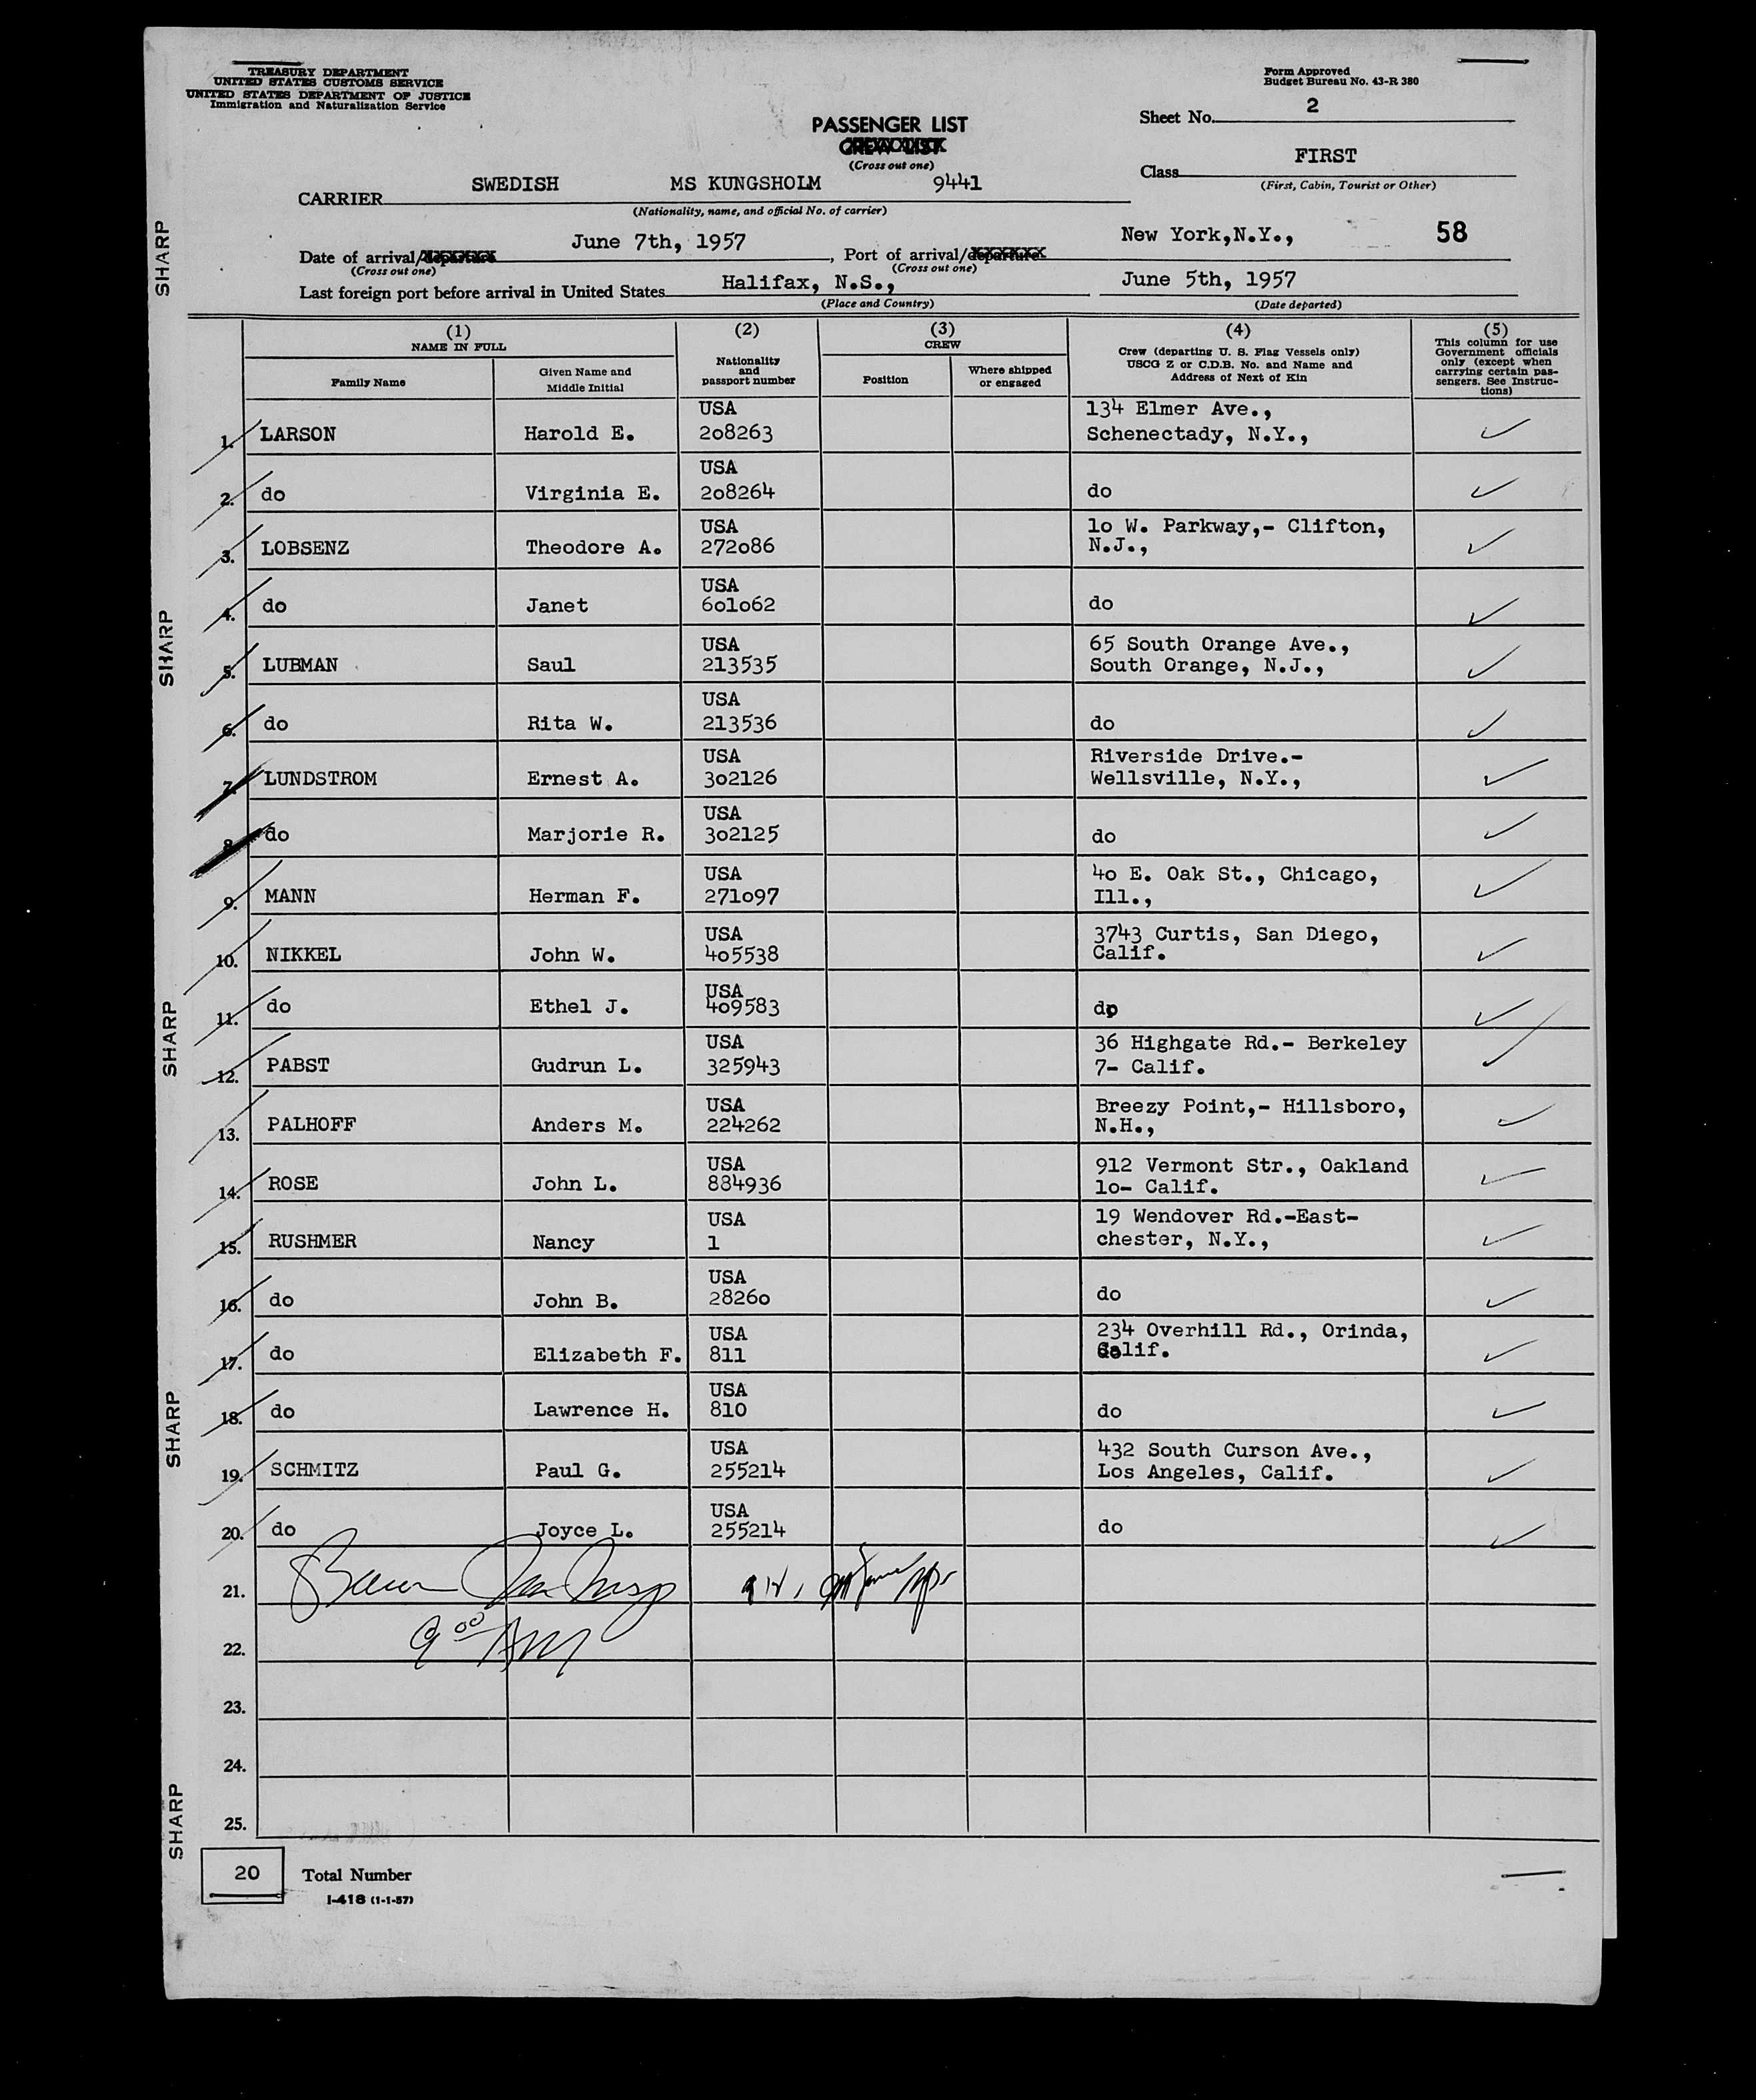 TREASURY DEPARTMENT
UNITED STATES CUSTOMS SERVICE
UNITED STATES DEPARTMENT OF JUSTICE
Immigration and Naturalization Service
Form Approved
Budget Bureau No. 43-R 380
Sheet No. 2
PASSENGER LIST
CREW LIST
(Cross out one)
Class FIRST
(First, Cabin, Tourist or Other)
CARRIER SWEDISH MS KUNGSHOLM 9441
(Nationality, name, and official No. of carrier)
Date of arrival/departure June 7th, 1957, Port of arrival/departure New York,N.Y., 58
(Cross out one) (Cross out one)
Last foreign port before arrival in United States Halifax, N.S., June 5th, 1957
(Place and Country) (Date departed)
(1) (2) (3) (4) (5)
NAME IN FULL
Family Name
Given Name and Middle Initial
Nationality and passport number
CREW
Position
Where shipped or engaged
Crew (departing U. S. Flag Vessels only)
USCG Z or C.D.B. No. and Name and
Address of Next of Kin
This column for use
Government officials
only (except when
carrying certain pas-
sengers. See Instruc-
tions)
USA 134 Elmer Ave.,
1. LARSON Harold E. 208263 Schenectady, N.Y.,
USA
2. do Virginia E. 208264 do
USA 10 W. Parkway,- Clifton,
3. LOBSENZ Theodore A. 272086 N.J.,
USA
4. do Janet 601062 do
USA 65 South Orange Ave.,
5. LUBMAN Saul 213535 South Orange, N.J.,
USA
6. do Rita W. 213536 do
USA Riverside Drive.-
7. LUNDSTROM Ernest A. 302126 Wellsville, N.Y.,
USA
8. do Marjorie R. 302125 do
USA 40 E. Oak St., Chicago,
9. MANN Herman F. 271097 Ill.,
USA 3743 Curtis, San Diego,
10. NIKKEL John W. 405538 Calif.
USA
11. do Ethel J. 409583 do
USA 36 Highgate Rd.- Berkeley
12. PABST Gudrun L. 325943 7- Calif.
USA Breezy Point,- Hillsboro,
13. PALHOFF Anders M. 224262 N.H.,
USA 912 Vermont Str., Oakland
14. ROSE John L. 884936 10- Calif.
USA 19 Wendover Rd.-East-
15. RUSHMER Nancy 1 chester, N.Y.,
USA
16. do John B. 28260 do
USA 234 Overhill Rd., Orinda,
17. do Elizabeth F. 811 Calif.
USA
18. do Lawrence H. 810 do
USA 432 South Curson Ave.,
19. SCHMITZ Paul G. 255214 Los Angeles, Calif.
USA
20. do Joyce L. 255214 do
21.
22. 9 00 AM
23.
24.
25.
20 Total Number
I-418 (1-1-57)
SHARP
SHARP
SHARP
SHARP
SHARP